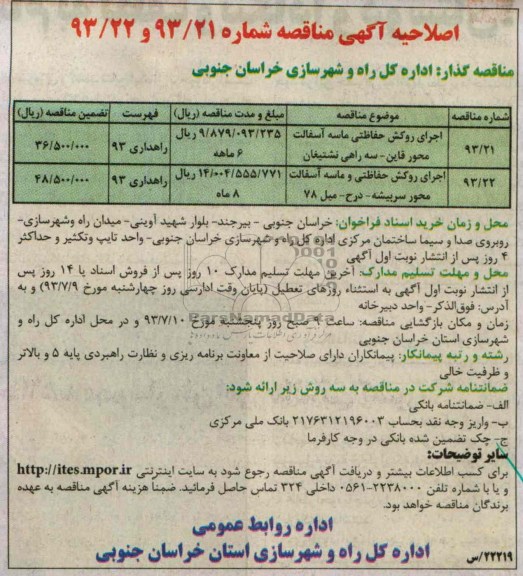 اصلاحیه آگهی مناقصه شماره ۹۳/۲۱ و ۹۳/۲۲
مناقصه گذار: اداره کل راه و شهرسازی خراسان جنوبی
شماره مناقصه | موضوع مناقصه | مبلغ و مدت مناقصه (ریال) | فهرست | تضمین مناقصه (ریال)
۹۳/۲۱ | اجرای روکش حفاظتی ماسه آسفالت محور قاین - سه راهی نشتیغان | ۹/۸۷۹/۰۹۳/۲۳۵ ریال ۶ ماهه | راهداری ۹۳ | ۳۶/۵۰۰/۰۰۰
۹۳/۲۲ | اجرای روکش حفاظتی و ماسه آسفالت محور سربیشه- درح- میل ۷۸ | ۱۴/۰۰۴/۵۵۵/۷۷۱ ریال ۸ ماه | راهداری ۹۳ | ۴۸/۵۰۰/۰۰۰
محل و زمان خرید اسناد فراخوان: خراسان جنوبی - بیرجند- بلوار شهید آوینی- میدان راه وشهرسازی-
روبروی صدا و سیما ساختمان مرکزی اداره کل راه و شهرسازی خراسان جنوبی- واحد تایپ وتکثیر و حداکثر
۴ روز پس از انتشار نوبت اول آگهی
محل و مهلت تسلیم مدارک: آخرین مهلت تسلیم مدارک ۱۰ روز پس از فروش اسناد یا ۱۴ روز پس
از انتشار نوبت اول آگهی به استثناء روزهای تعطیل (پایان وقت ادارسی روز چهارشنبه مورخ ۹۳/۷/۹) و به
آدرس: فوق‌الذکر- واحد دبیرخانه
زمان و مکان بازگشایی مناقصه: ساعت ۹ صبح روز پنجشنبه مورخ ۹۳/۷/۱۰ و در محل اداره کل راه و
شهرسازی استان خراسان جنوبی
رشته و رتبه پیمانکار: پیمانکاران دارای صلاحیت از معاونت برنامه ریزی و نظارت راهبردی پایه ۵ و بالاتر
و ظرفیت خالی
ضمانتنامه شرکت در مناقصه به سه روش زیر ارائه شود:
الف- ضمانتنامه بانکی
ب- واریز وجه نقد بحساب ۲۱۷۶۳۱۲۱۹۶۰۰۳ بانک ملی مرکزی
ج- چک تضمین شده بانکی در وجه کارفرما
سایر توضیحات:
برای کسب اطلاعات بیشتر و دریافت آگهی مناقصه رجوع شود به سایت اینترنتی http://ites.mpor.ir
و یا با شماره تلفن ۲۲۳۸۰۰۰-۰۵۶۱ داخلی ۳۲۴ تماس حاصل فرمائید. ضمناً هزینه آگهی مناقصه به عهده
برندگان مناقصه خواهد بود.
اداره روابط عمومی
اداره کل راه و شهرسازی استان خراسان جنوبی
۲۲۲۱۹/س